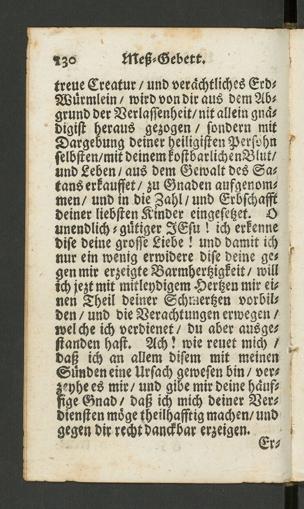 130 Meß-Gebett.
treue Creatur / und verächtliches Erd-
Würmlein / wird von dir aus dem Ab-
grund der Verlassenheit / nit allein gnä-
digist heraus gezogen / sondern mit
Dargebung deiner heiligisten Persohn
selbsten / mit deinem kostbarlichen Blut /
und Leben / aus dem Gewalt des Sa-
tans erkauffet / zu Gnaden aufgenom-
men / und in die Zahl / und Erbschafft
deiner liebsten Kinder eingesetzet. O
unendlich-gütiger JEsu ! ich erkenne
dise deine grosse Liebe ! und damit ich
nur ein wenig erwidere dise deine ge-
gen mir erzeigte Barmhertzigkeit / will
ich jezt mit mitleydigem Hertzen mir ei-
nen Theil deiner Schmertzen vorbil-
den / und die Verachtungen erwegen /
welche ich verdienet / du aber ausge-
standen hast. Ach ! wie reuet mich /
daß ich an allem disem mit meinen
Sünden eine Ursach gewesen bin / ver-
zeyhe es mir / und gibe mir deine häuf-
fige Gnad / daß ich mich deiner Ver-
diensten möge theilhafftig machen / und
gegen dir recht danckbar erzeigen.
Er-